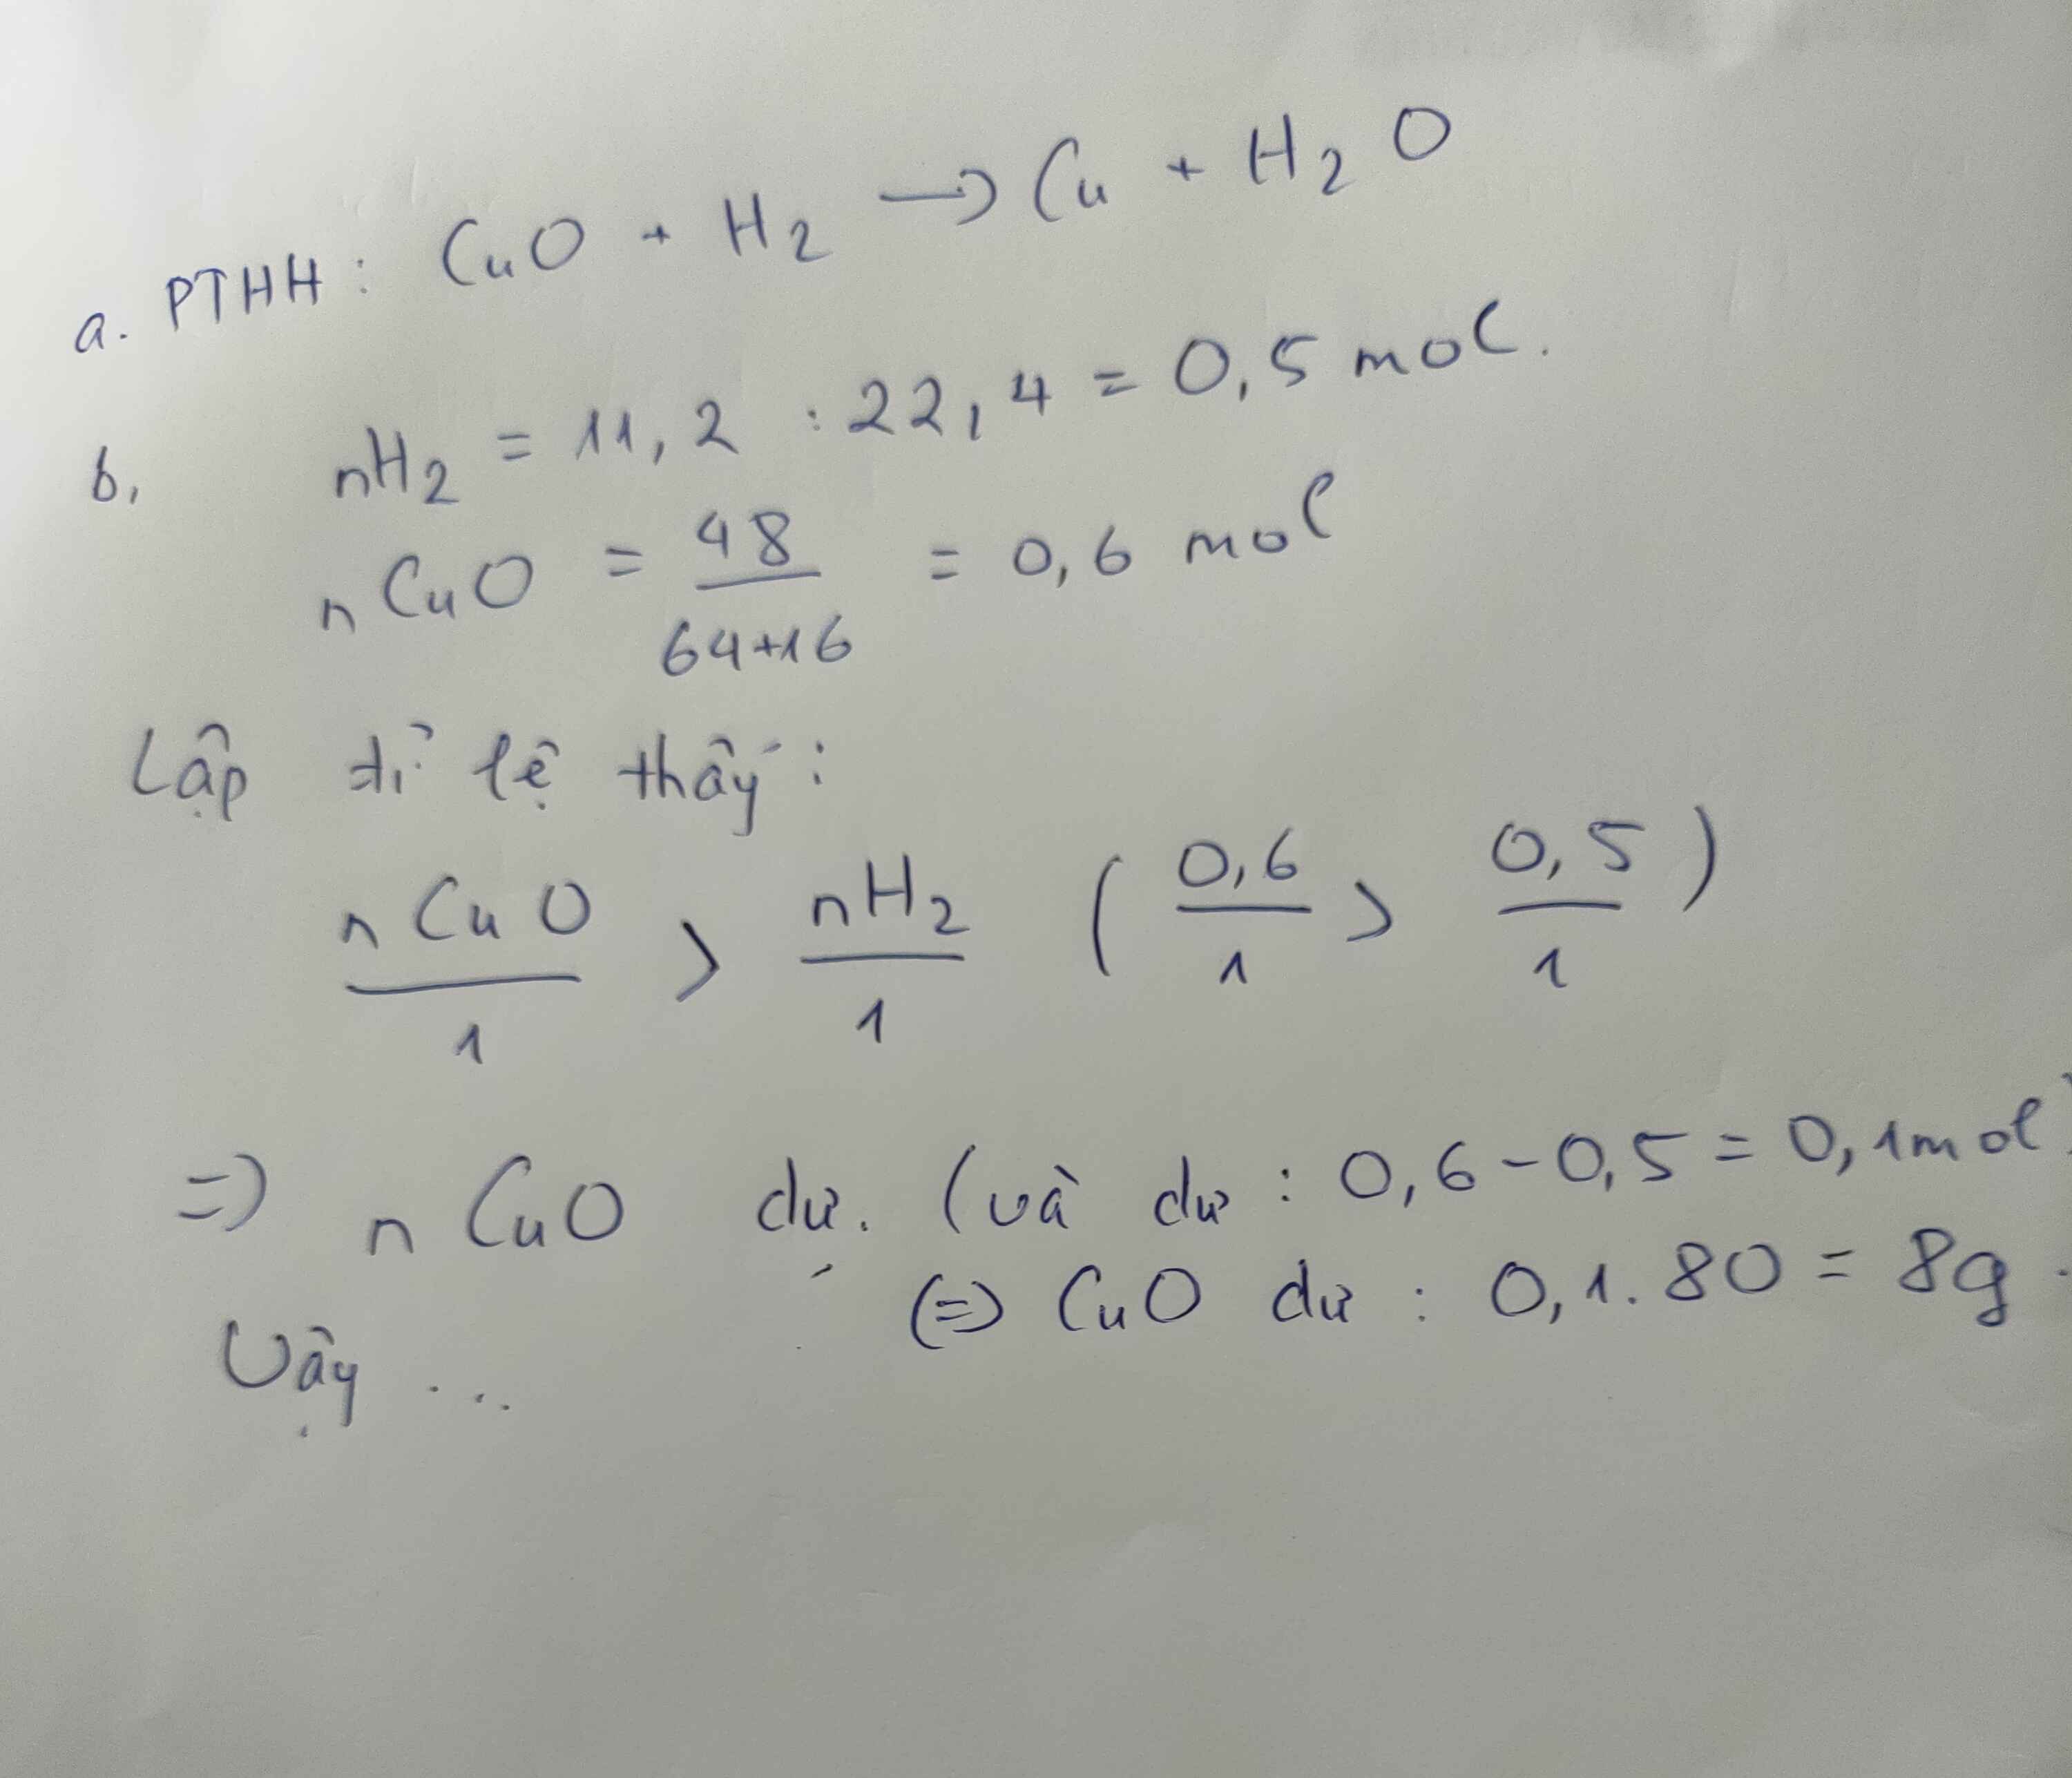 a. PTHH : CuO + H2 → Cu + H2O
b, nH2 = 11,2 : 22,4 = 0,5 mol.
nCuO = 48 / 64+16 = 0,6 mol
Lập tỉ lệ thấy :
nCuO / 1 > nH2 / 1 ( 0,6 / 1 > 0,5 / 1 )
=> nCuO dư. (và dư : 0,6 - 0,5 = 0,1mol)
(=> CuO dư : 0,1. 80 = 8g.
Vậy ...